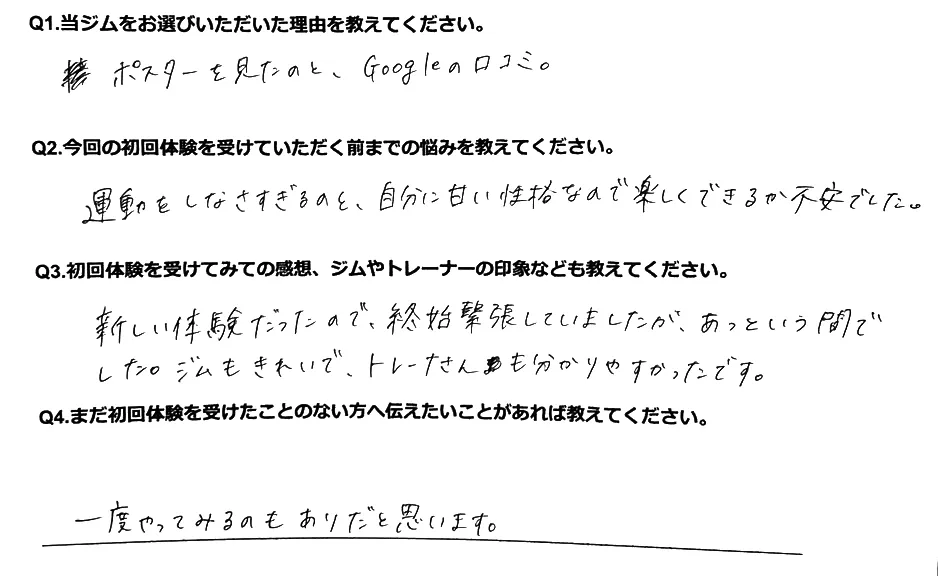 Q1.当ジムをお選びいただいた理由を教えてください。
ポスターを見たのと、Googleの口コミ。
Q2.今回の初回体験を受けていただく前までの悩みを教えてください。
運動をしなさすぎるのと、自分に甘い性格なので楽しくできるか不安でした。
Q3.初回体験を受けてみての感想、ジムやトレーナーの印象なども教えてください。
新しい体験だったので、終始緊張していましたが、あっという間で
した。ジムもきれいで、トレーナさんも分かりやすかったです。
Q4.まだ初回体験を受けたことのない方へ伝えたいことがあれば教えてください。
一度やってみるのもありだと思います。